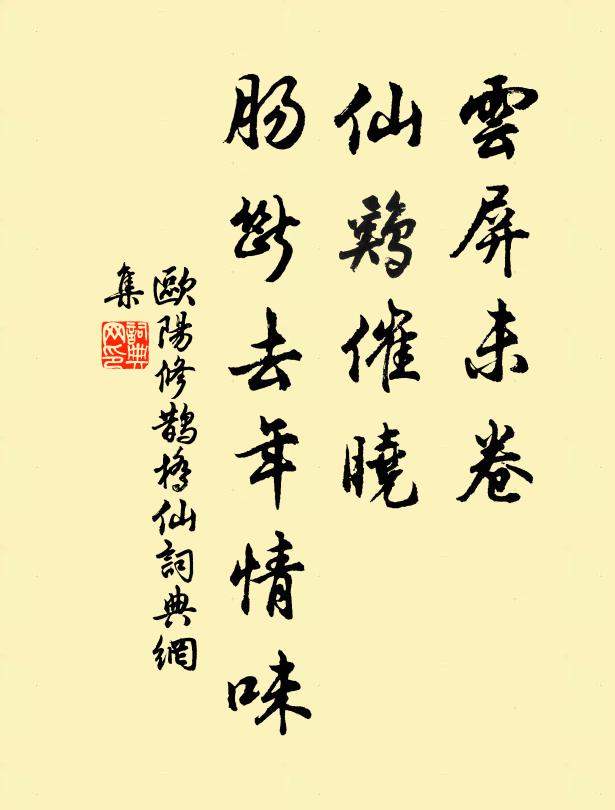 雲屏未卷
仙鷄催曉
肠斷去年情味
歐陽修鵲橋仙詞典網
集
詞典
网印